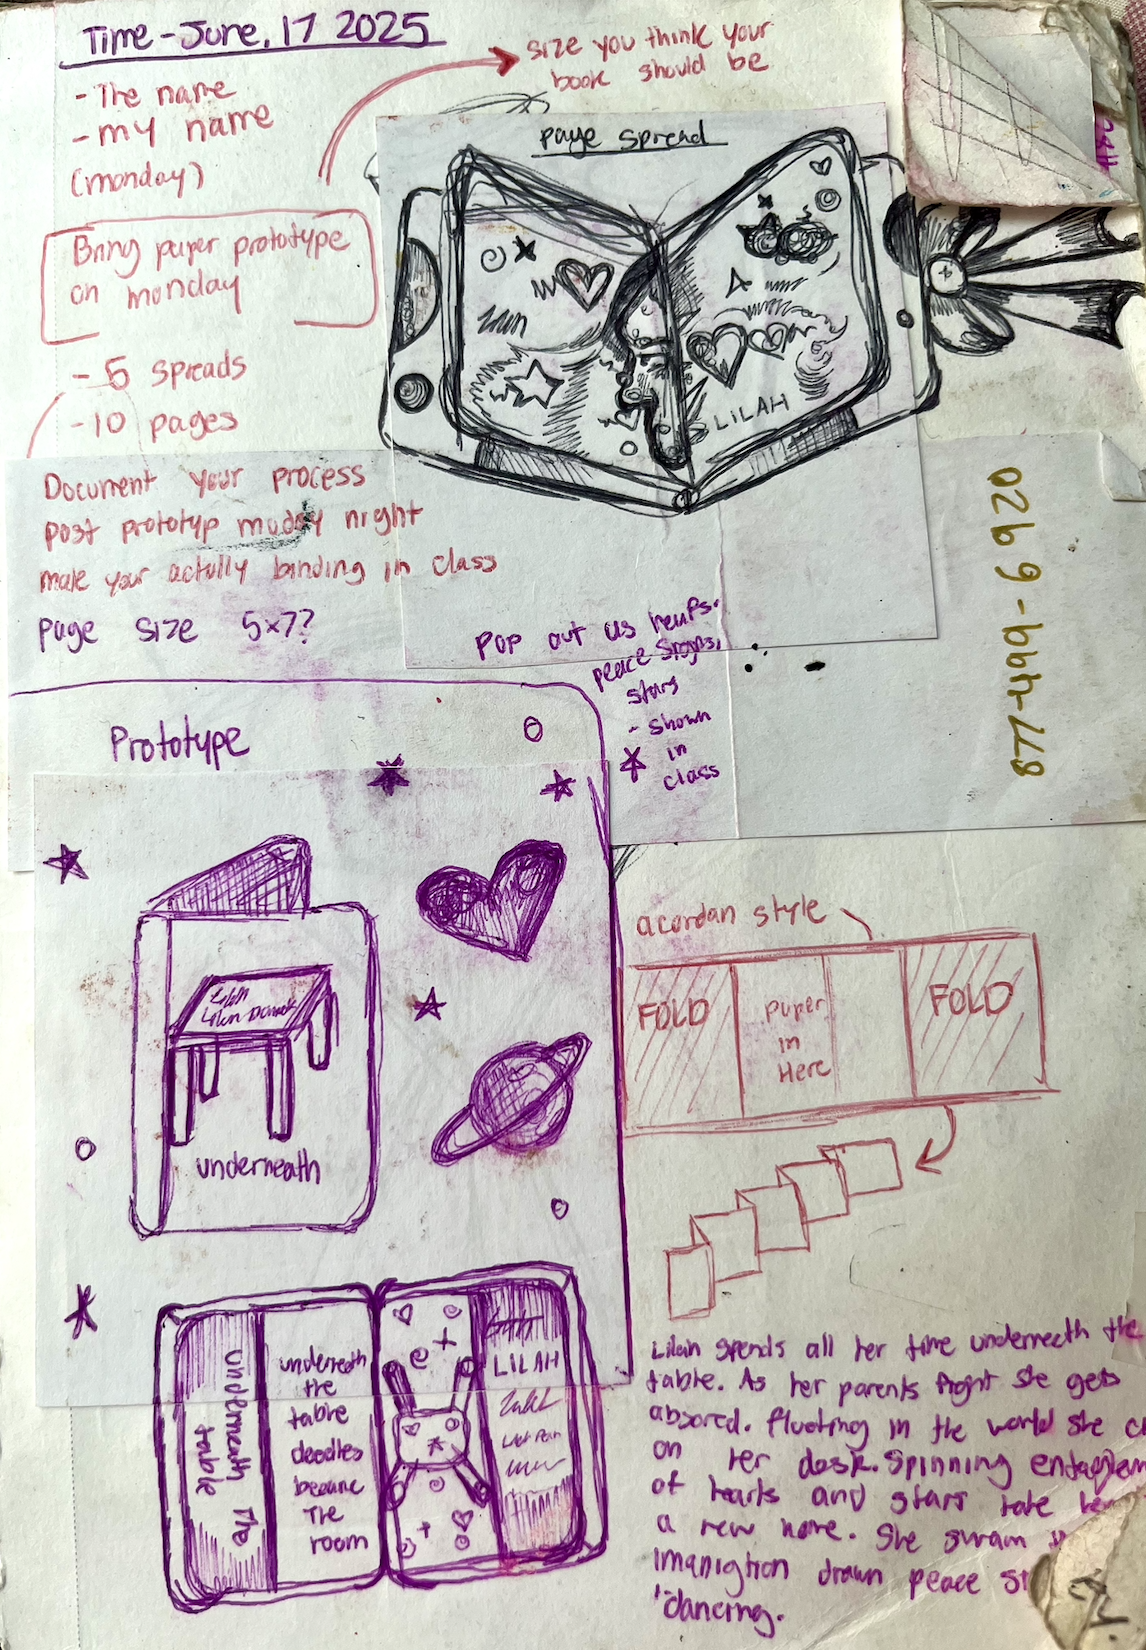 Time - June, 17 2025
- The name
- my name
(monday)
size you think your
book should be
Bring paper prototype
on monday
- 5 spreads
- 10 pages
Document your process
post prototyp muday night
make your actully binding in class
page size 5x7?
page spread
LILAH
pop out us
peace signs,
stars
- shown
in
class
Prototype
underneath
acordan style
FOLD
paper
in
Here
FOLD
underneath The
table
underneath
the
table
doodles
became
The
room
LILAH
Lilah spends all her time underneath the
table. As her parents fight she gets
absored. fluoting in the world she
on her desk. Spinning
of hearts and stars take
a new home. She swam
imanigtion drawn peace
dancing.